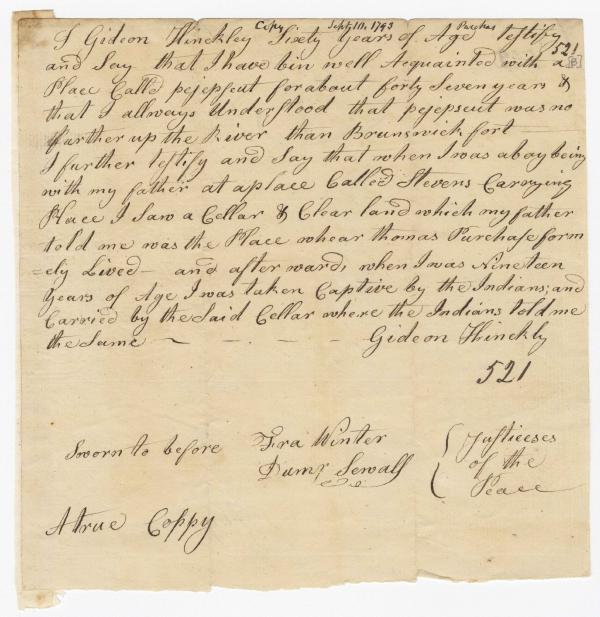 Copy Septr 10. 1793 Purchas
I Gideon Hinckley Sixty years of Age testify
521
and Say that I have bin well Acquainted with a
Place Called pejepscut for about forty Seven years &
that I allways Understood that pejepscut was no
farther up the River than Brunswick fort
I further testify and Say that when I was a boy being
with my father at a place Called Stevens Carrying
Place I Saw a Cellar & Clear land which my father
told me was the Place whear thomas Purchase form
=ely Lived — and after ward, when I was Nineteen
years of Age I was taken Captive by the Indians, and
Carried by the Said Cellar where the Indians told me
the Same ~ - . - - . Gideon Hinckly
521
Sworn to before Fra Winter { Justiceses
Dumr Sewall of the
Peace
A true Coppy